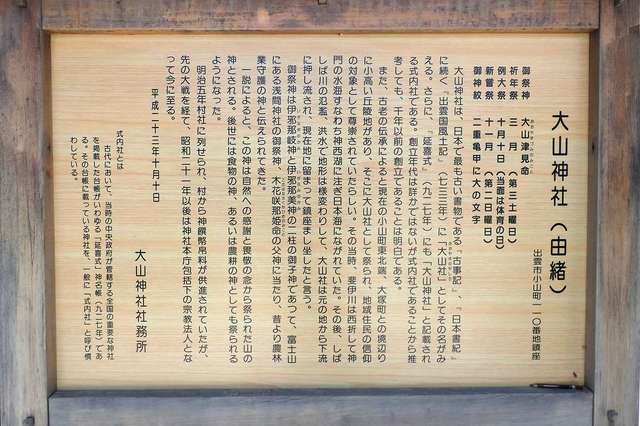 大山神社（由緒）
出雲市小山町一一〇番地鎮座
御祭神　大山津見命
祈年祭　三月　（第三土曜日）
例大祭　十月十日（当面は体育の日）
新嘗祭　十一月　（第二日曜日）
御神紋　二重亀甲に大の文字
大山神社は、日本で最も古い書物である「古事記」、「日本書紀」
に続く「出雲国風土記」（七三三年）に「大山社」としてその名がみ
える。さらに、「延喜式」（九二七年）にも「大山神社」と記載され
る式内社である。創立年代は詳かではないが式内社であることから推
考しても、千年以前の創立であることは明白である。
また、古老の伝承によると現在の小山町東北端、大塚町との境辺り
に小高い丘陵地があり、そこに大山社として祭られ、地域住民の信仰
の対象として尊崇されていたらしい。その当時、斐伊川は西折して神
門の水海すなわち神西湖に注ぎ日本海にながれていた。その後、しば
しば川の氾濫、洪水で地形は様変わりして、大山社は元の地から下流
に押し流され、現在地に留まって鎮座まし坐したと言う。
御祭神は伊邪那岐神と伊邪那美神の二柱の御子神であつて、富士山
にある浅間神社の御祭神、木花咲那姫命の父神に当たり、昔より農林
業守護の神と伝えられてきた。
一説によると、この神は自然への感謝と畏敬の念から祭られた山の
神とされる。後世には食物の神、あるいは農耕の神としても祭られる
ようになった。
明治五年村社に列せられ、村から神饌幣帛料が供進されていたが、
先の大戦を経て、昭和二十一年以後は神社本庁包括下の宗教法人とな
って今に至る。
平成二十三年十月十日
大山神社社務所
式内社とは
古代において、当時の中央政府が管轄する全国の重要な神社
を掲載した台帳がいわゆる「延喜式」神名帳（九二七年）であ
る。その台帳に載っている神社を、一般に「式内社」と呼び慣
わしている。